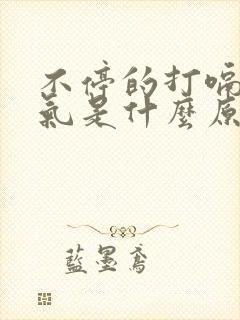 不停的打嗝
氣是什麼原
藍墨鳶